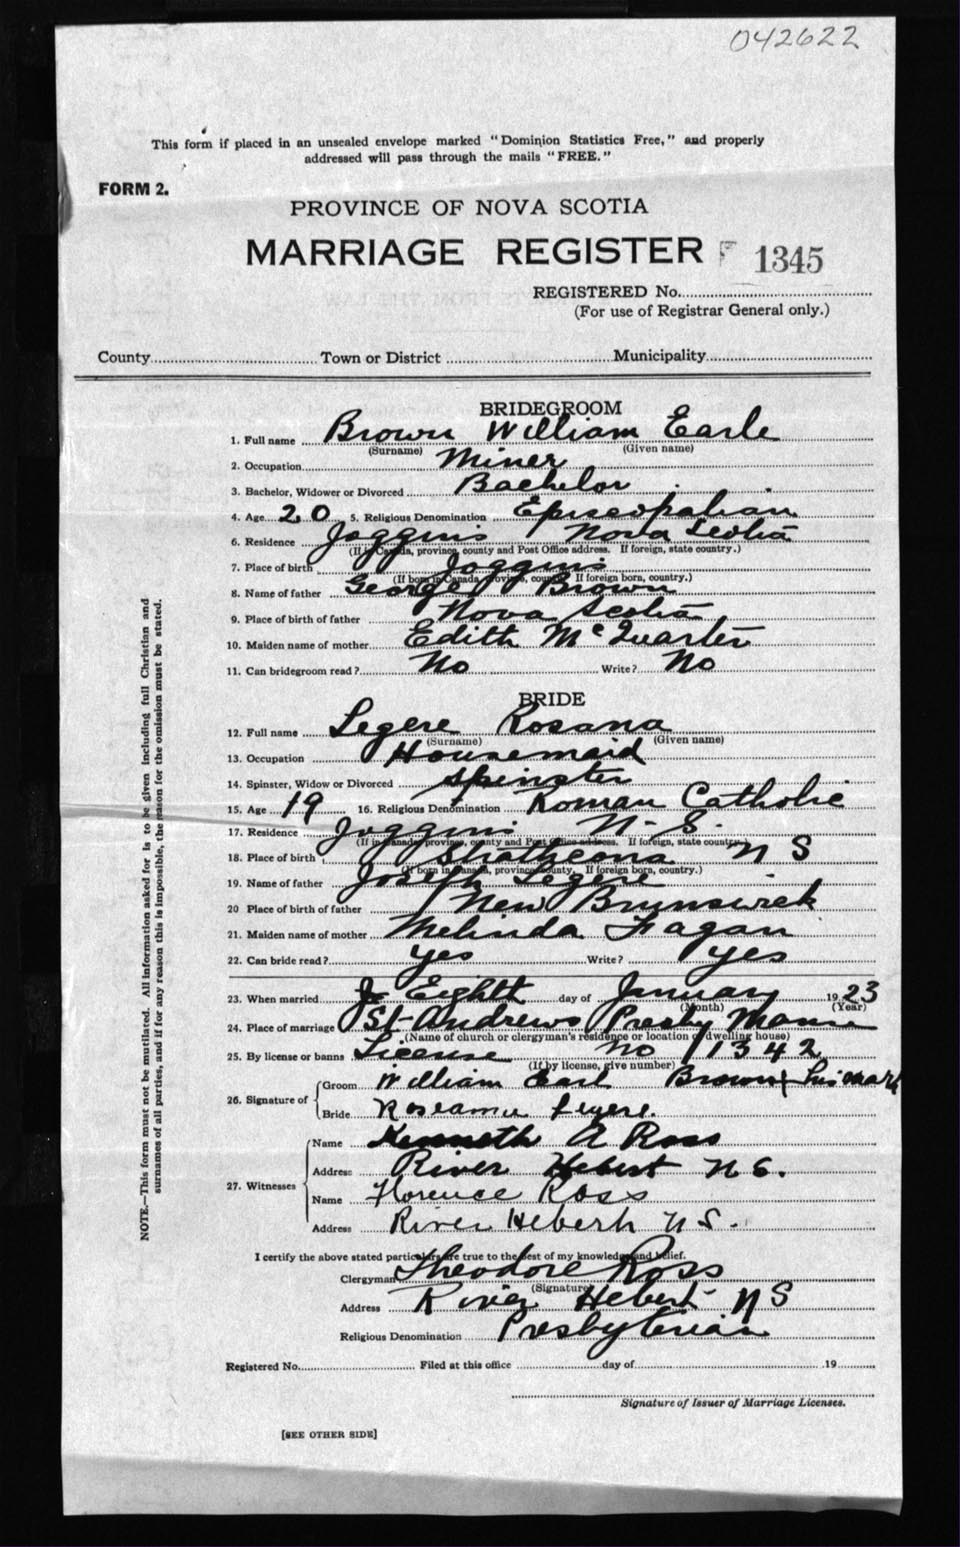 042622
This form if placed in an unsealed envelope marked "Dominion Statistics Free," and properly
addressed will pass through the mails "FREE."
FORM 2.
PROVINCE OF NOVA SCOTIA
MARRIAGE REGISTER 1345
REGISTERED No.
(For use of Registrar General only.)
County Town or District Municipality
BRIDEGROOM
1. Full name Brown William Earle
(Surname) (Given name)
2. Occupation Miner
3. Bachelor, Widower or Divorced Bachelor
4. Age 20 5. Religious Denomination Episcopalian
6. Residence Joggins Nova Scotia
(If in Canada, province, county and Post Office address. If foreign, state country.)
7. Place of birth Joggins
(If born in Canada province, county. If foreign born, country.)
8. Name of father George Brown
9. Place of birth of father Nova Scotia
10. Maiden name of mother Edith McQuarter
11. Can bridegroom read? No Write? No
BRIDE
12. Full name Legere Rosana
(Surname) (Given name)
13. Occupation Housemaid
14. Spinster, Widow or Divorced Spinster
15. Age 19 16. Religious Denomination Roman Catholic
17. Residence Joggins N. S.
(If in Canada, province, county and Post Office address. If foreign, state country.)
18. Place of birth Strathcona N S
(If born in Canada, province, county. If foreign born, country.)
19. Name of father Joseph Legere
20 Place of birth of father New Brunswick
21. Maiden name of mother Melinda Fagan
22. Can bride read? Yes Write? Yes
23. When married Eighth day of January 1923
(Month) (Year)
24. Place of marriage St Andrews Presby Manse
(Name of church or clergyman's residence or location of dwelling house)
25. By license or banns License No 1342
(If by license, give number)
26. Signature of Groom William Earl Brown X his mark
Bride Roseanna Legere.
27. Witnesses Name Kenneth A Ross
Address River Hebert N S.
Name Florence Ross
Address River Hebert N S.
I certify the above stated particulars are true to the best of my knowledge and belief.
Clergyman Theodore Ross
(Signature)
Address River Hebert N S
Religious Denomination Presbyterian
Registered No. Filed at this office day of 19
Signature of Issuer of Marriage Licenses.
[SEE OTHER SIDE]
NOTE.—This form must not be mutilated. All information asked for is to be given including full Christian and
surnames of all parties, and if for any reason this is impossible, the reason for the omission must be stated.